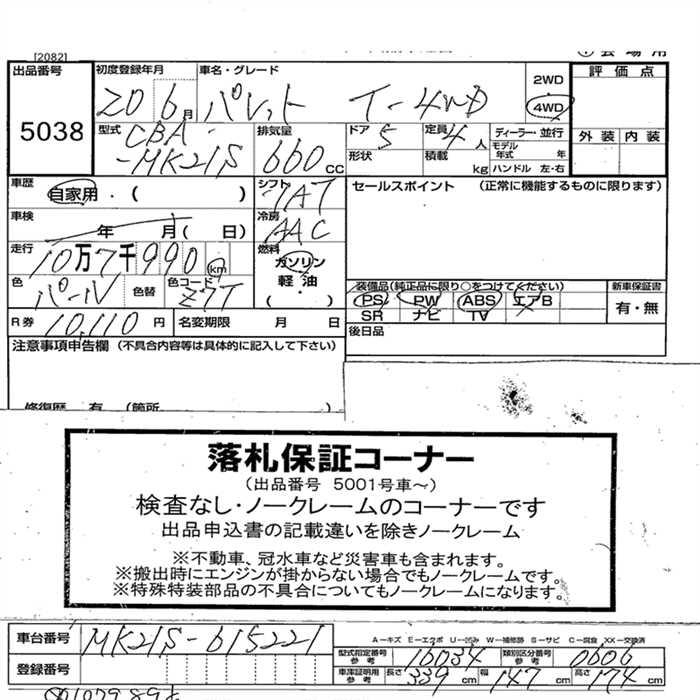 [2082]
出品番号 初度登録年月 車名・グレード 2WD 評価点
5038 20 6月 パレット T-4WD 4WD
型式 CBA-MK21S 排気量 660cc ドア 5 定員 4人 ディーラー・並行 外装 内装
形状 積載 kg モデル年式 年 ハンドル 左・右
車歴 自家用・( ) シフト 7AT セールスポイント (正常に機能するものに限ります)
車検 年 月( 日) 冷房 AAC
走行 10万7千990km 燃料 ガソリン 軽油・( )
色 パール 色替 色コード Z7T 装備品(純正品に限り○をつけてください) 新車保証書
PS PW ABS エアB 有・無
SR ナビ TV
R券 10,110円 名変期限 月 日 後日品
注意事項申告欄 (不具合内容等は具体的に記入して下さい)
修復歴 有 (箇所 )
落札保証コーナー
(出品番号 5001号車~)
検査なし・ノークレームのコーナーです
出品申込書の記載違いを除きノークレーム
※不動車、冠水車など災害車も含まれます。
※搬出時にエンジンが掛からない場合でもノークレームです。
※特殊特装部品の不具合についてもノークレームになります。
車台番号 MK21S-615221 A-キズ E-エクボ U-凹み W-補修跡 S-サビ C-腐食 XX-交換済
型式指定番号参考 16034 類別区分番号参考 0606
登録番号 車庫証明用参考 長さ 339cm 幅 147cm 高さ 174cm